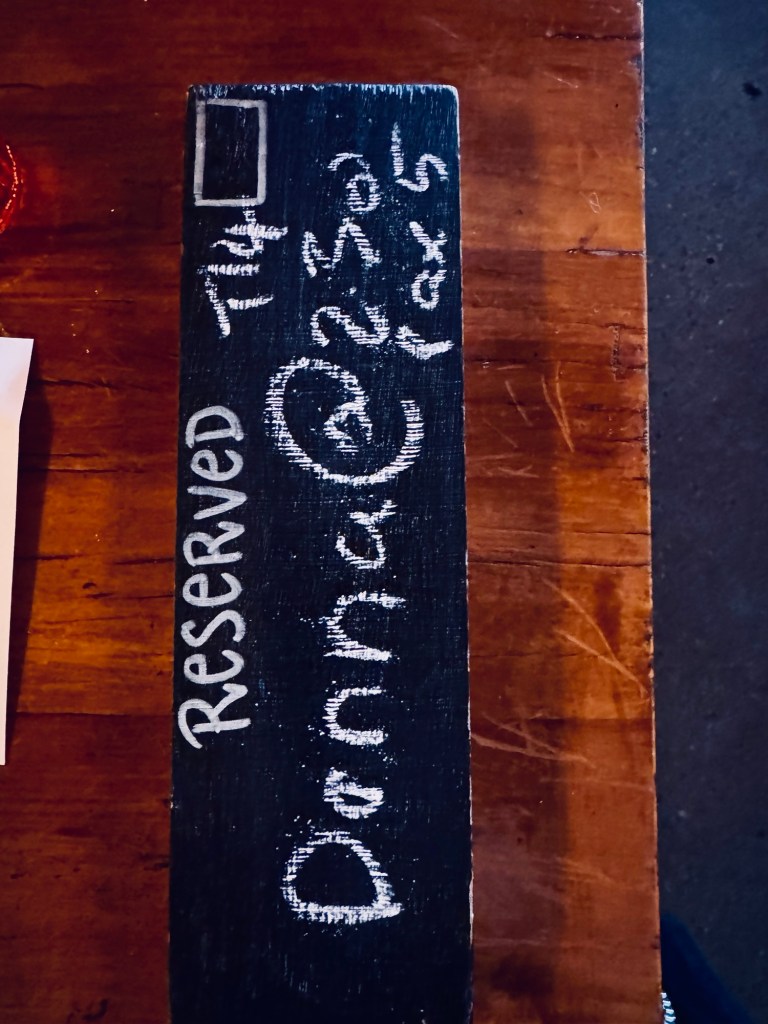 RESERVED T14
Donna @ 230
Pax 5